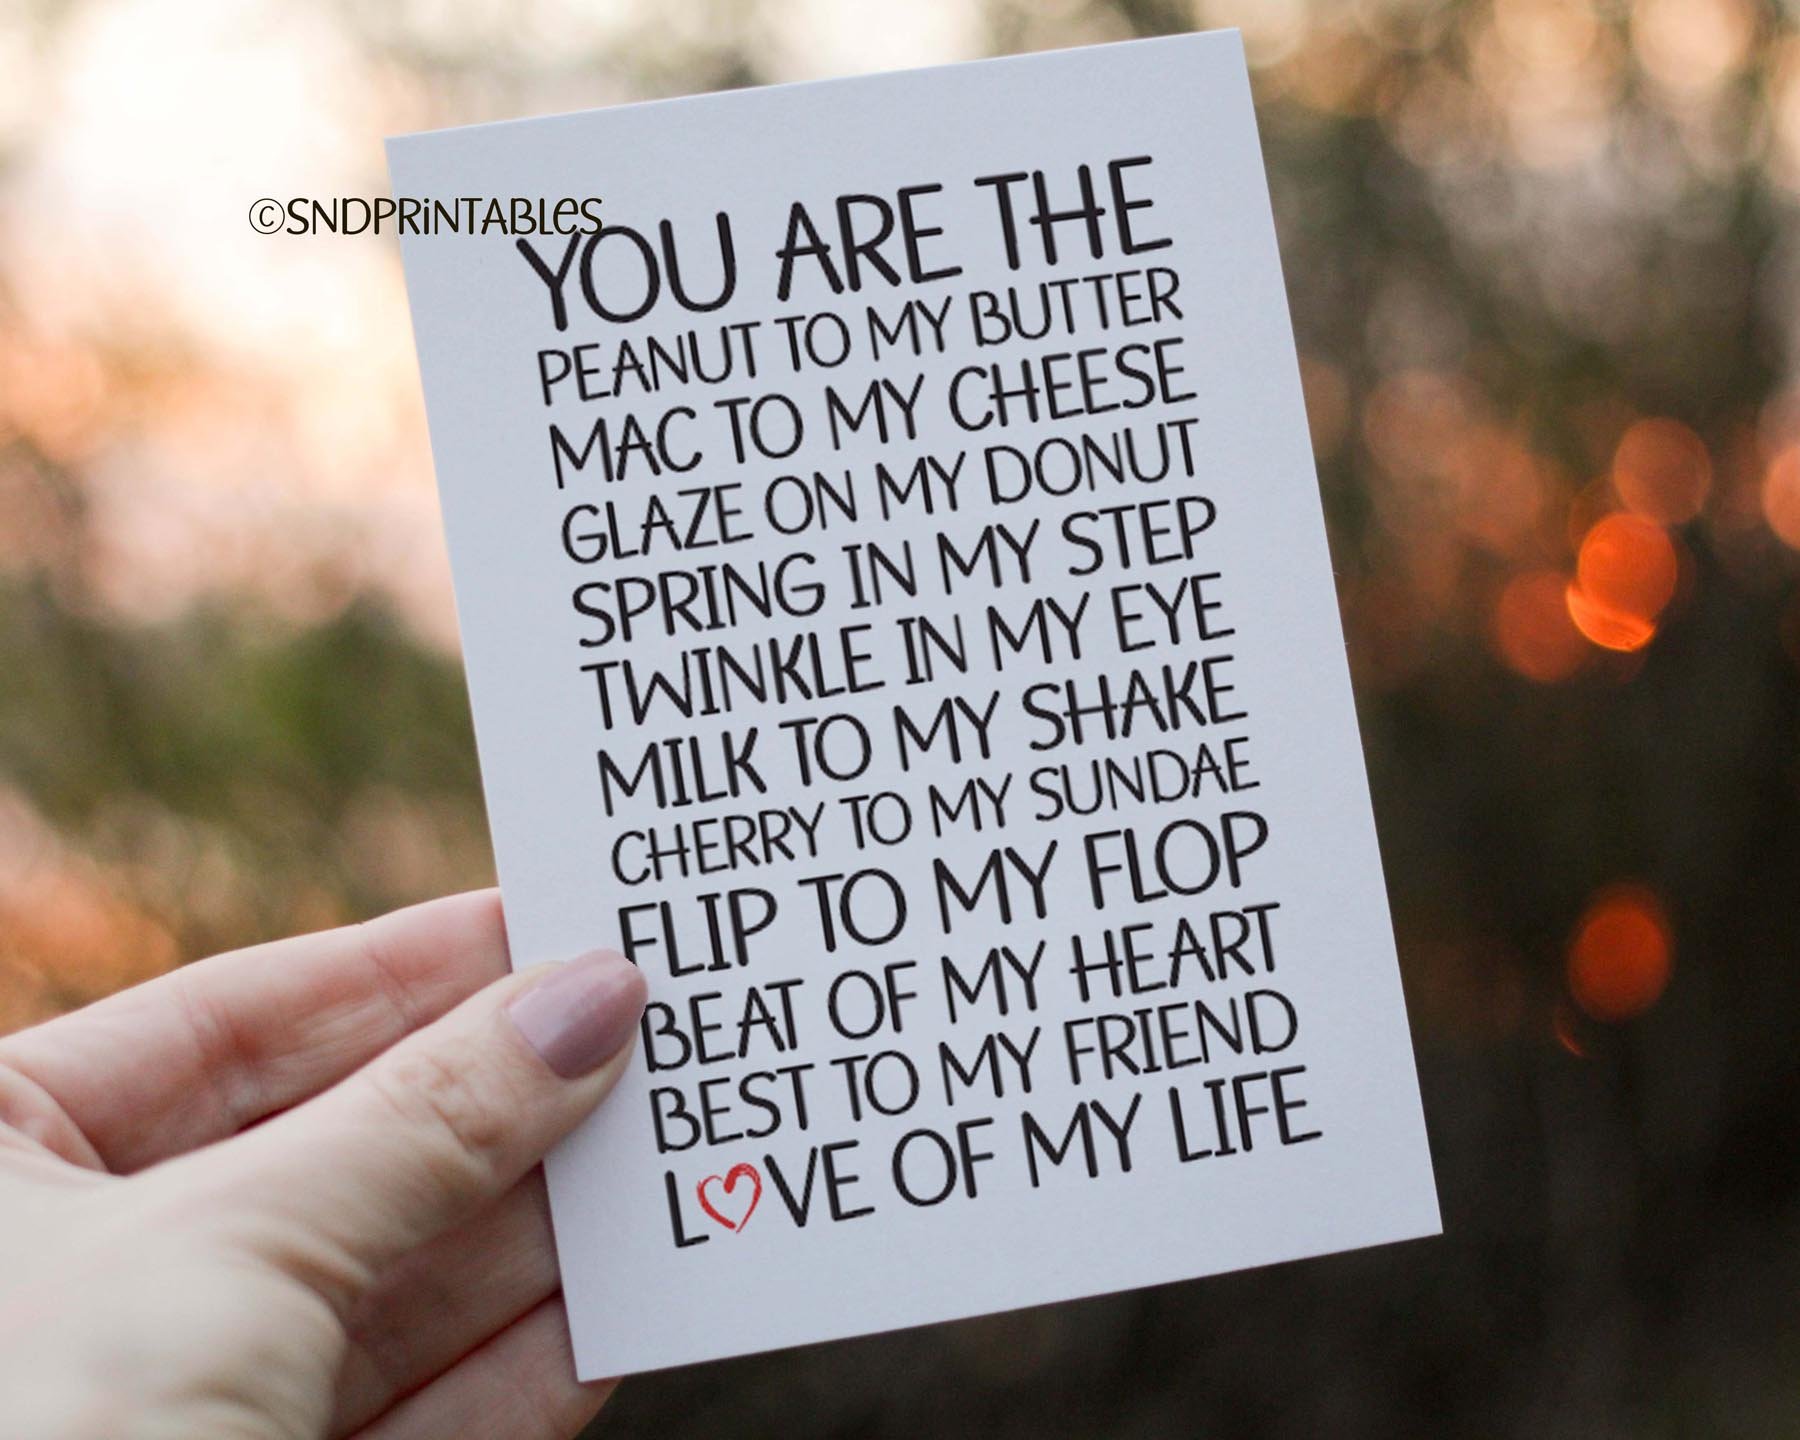 ©SNDPRiNTABLeS
YOU ARE THE
PEANUT TO MY BUTTER
MAC TO MY CHEESE
GLAZE ON MY DONUT
SPRING IN MY STEP
TWINKLE IN MY EYE
MILK TO MY SHAKE
CHERRY TO MY SUNDAE
FLIP TO MY FLOP
BEAT OF MY HEART
BEST TO MY FRIEND
L♡VE OF MY LIFE